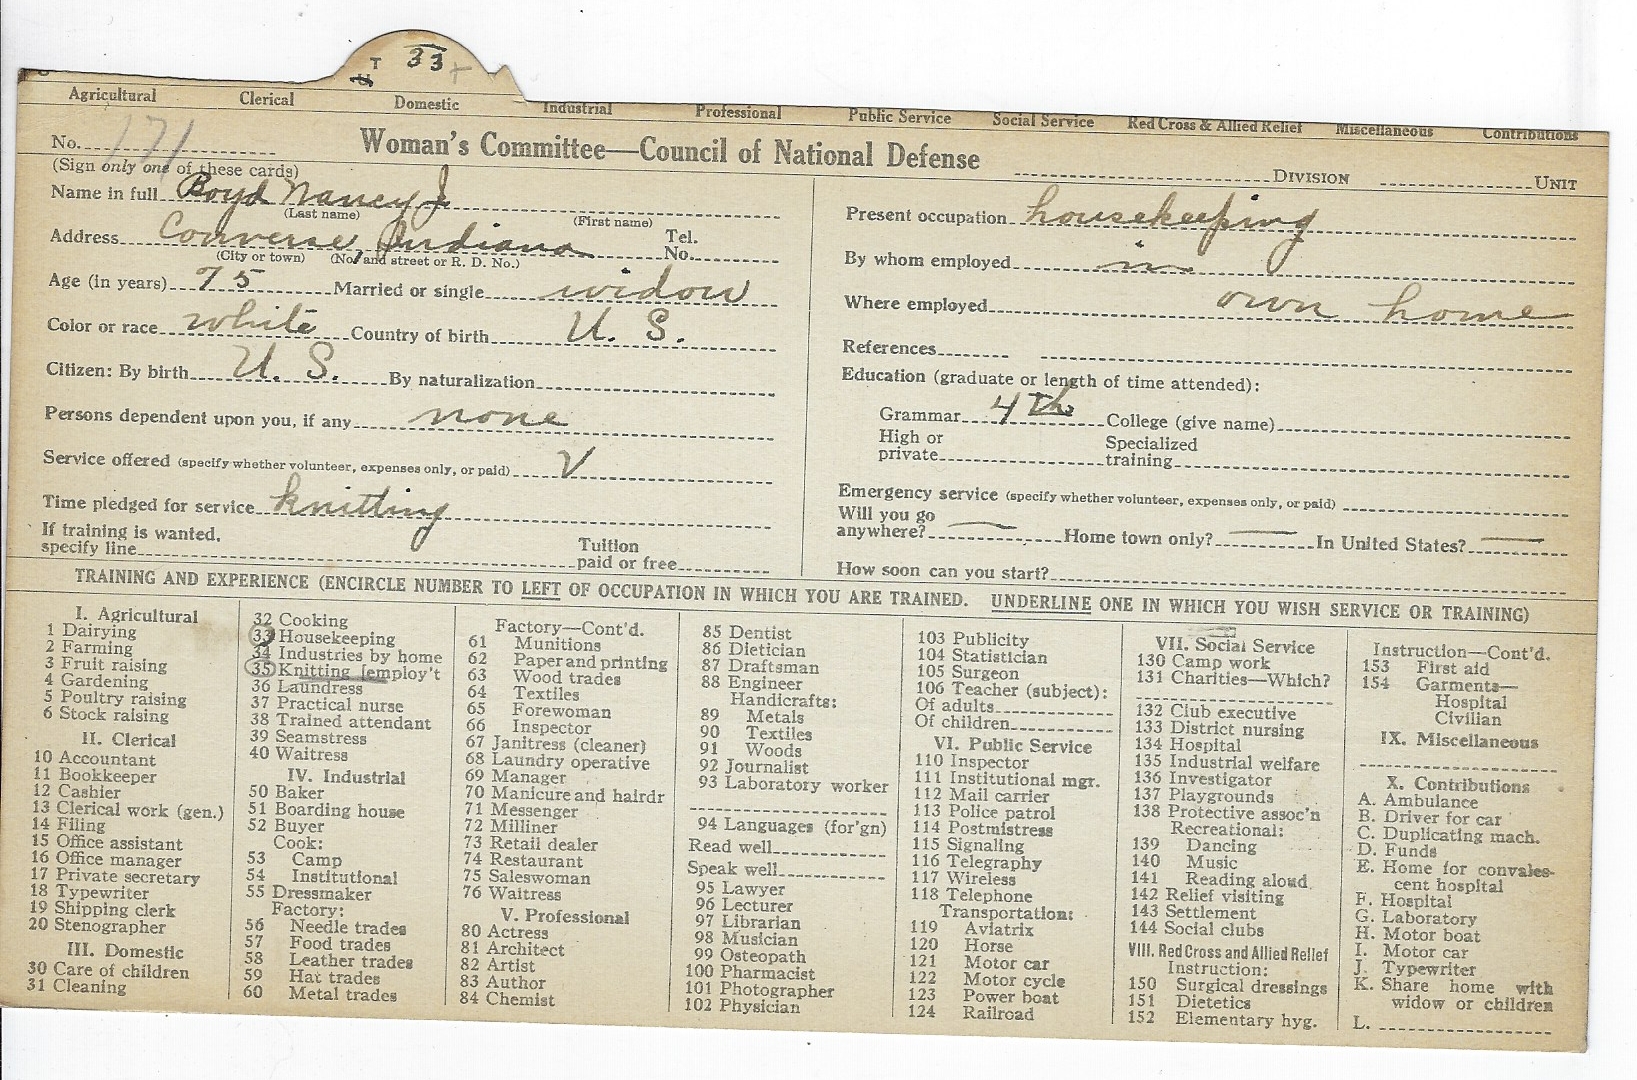 T 33 +
Agricultural Clerical Domestic Industrial Professional Public Service Social Service Red Cross & Allied Relief Miscellaneous Contributions
No. 171
Woman's Committee—Council of National Defense
DIVISION UNIT
(Sign only one of these cards)
Name in full Boyd Nancy J
(Last name) (First name)
Address Converse, Indiana Tel. No.
(City or town) (No. and street or R. D. No.)
Age (in years) 75 Married or single widow
Color or race white Country of birth U. S.
Citizen: By birth U. S. By naturalization
Persons dependent upon you, if any none
Service offered (specify whether volunteer, expenses only, or paid) V
Time pledged for service knitting
If training is wanted,
specify line Tuition
paid or free
Present occupation housekeeping
By whom employed in
Where employed own home
References
Education (graduate or length of time attended):
Grammar 4th College (give name)
High or
private Specialized
training
Emergency service (specify whether volunteer, expenses only, or paid)
Will you go
anywhere? — Home town only? — In United States? —
How soon can you start?
TRAINING AND EXPERIENCE (ENCIRCLE NUMBER TO LEFT OF OCCUPATION IN WHICH YOU ARE TRAINED. UNDERLINE ONE IN WHICH YOU WISH SERVICE OR TRAINING)
I. Agricultural
1 Dairying
2 Farming
3 Fruit raising
4 Gardening
5 Poultry raising
6 Stock raising
II. Clerical
10 Accountant
11 Bookkeeper
12 Cashier
13 Clerical work (gen.)
14 Filing
15 Office assistant
16 Office manager
17 Private secretary
18 Typewriter
19 Shipping clerk
20 Stenographer
III. Domestic
30 Care of children
31 Cleaning
32 Cooking
33 Housekeeping
34 Industries by home
35 Knitting [employ't
36 Laundress
37 Practical nurse
38 Trained attendant
39 Seamstress
40 Waitress
IV. Industrial
50 Baker
51 Boarding house
52 Buyer
Cook:
53 Camp
54 Institutional
55 Dressmaker
Factory:
56 Needle trades
57 Food trades
58 Leather trades
59 Hat trades
60 Metal trades
Factory—Cont'd.
61 Munitions
62 Paper and printing
63 Wood trades
64 Textiles
65 Forewoman
66 Inspector
67 Janitress (cleaner)
68 Laundry operative
69 Manager
70 Manicure and hairdr
71 Messenger
72 Milliner
73 Retail dealer
74 Restaurant
75 Saleswoman
76 Waitress
V. Professional
80 Actress
81 Architect
82 Artist
83 Author
84 Chemist
85 Dentist
86 Dietician
87 Draftsman
88 Engineer
Handicrafts:
89 Metals
90 Textiles
91 Woods
92 Journalist
93 Laboratory worker
94 Languages (for'gn)
Read well
Speak well
95 Lawyer
96 Lecturer
97 Librarian
98 Musician
99 Osteopath
100 Pharmacist
101 Photographer
102 Physician
103 Publicity
104 Statistician
105 Surgeon
106 Teacher (subject):
Of adults
Of children
VI. Public Service
110 Inspector
111 Institutional mgr.
112 Mail carrier
113 Police patrol
114 Postmistress
115 Signaling
116 Telegraphy
117 Wireless
118 Telephone
Transportation:
119 Aviatrix
120 Horse
121 Motor car
122 Motor cycle
123 Power boat
124 Railroad
VII. Social Service
130 Camp work
131 Charities—Which?
132 Club executive
133 District nursing
134 Hospital
135 Industrial welfare
136 Investigator
137 Playgrounds
138 Protective assoc'n
Recreational:
139 Dancing
140 Music
141 Reading aloud
142 Relief visiting
143 Settlement
144 Social clubs
VIII. Red Cross and Allied Relief
Instruction:
150 Surgical dressings
151 Dietetics
152 Elementary hyg.
Instruction—Cont'd.
153 First aid
154 Garments—
Hospital
Civilian
IX. Miscellaneous
X. Contributions
A. Ambulance
B. Driver for car
C. Duplicating mach.
D. Funds
E. Home for convales-
cent hospital
F. Hospital
G. Laboratory
H. Motor boat
I. Motor car
J. Typewriter
K. Share home with
widow or children
L.